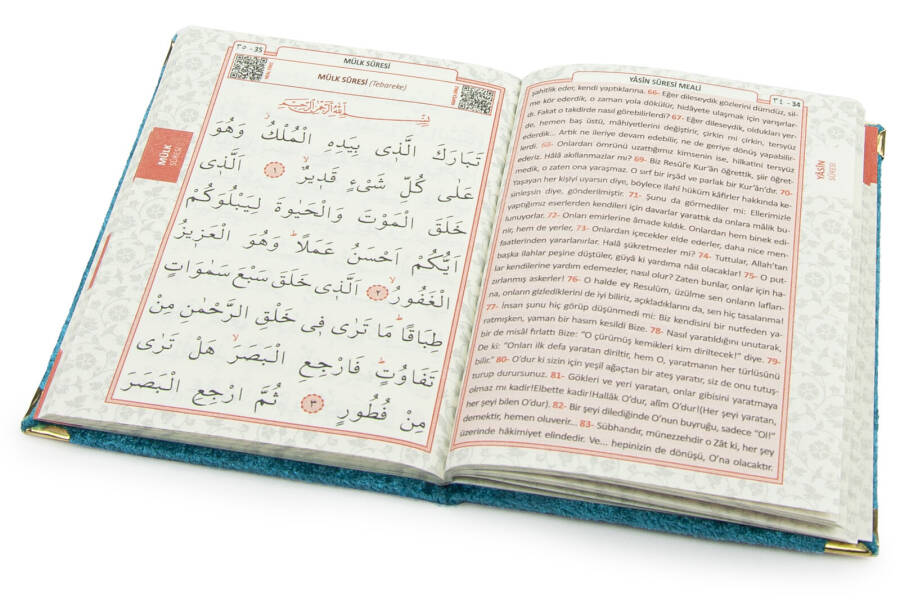 YÂSÎN SÛRESİ MEALİ
٣٤ - 34
YÂSÎN
SÛRESİ
şahitlik eder, kendi yaptıklarına. 66- Eğer dileseydik gözlerini dümdüz, sil-
me kör ederdik, o zaman yola dökülür, hidâyete ulaşmak için yarışırlar-
dı. Fakat o takdirde nasıl görebilirlerdi? 67- Eğer dileseydik, oldukları yer-
de, hemen baş üstü, mâhiyetlerini değiştirir, çirkin mi çirkin, tersyüz
ederdik... Artık ne ileriye devam edebilir, ne de geriye dönüş yapabilir-
lerdi. 68- Onlardan ömrünü uzattığımız kimsenin ise, hilkatini tersyüz
ederiz. Hâlâ akıllanmazlar mı? 69- Biz Resûl'e Kur'ân öğrettik, şiir öğret-
medik, o zaten ona yaraşmaz. O sırf bir irşâd ve parlak bir Kur'ân'dır. 70-
Yaşayan her kişiyi uyarsın diye, böylece ilahî hüküm kâfirler hakkında ke-
sinleşsin diye, gönderilmiştir. 71- Şunu da görmediler mi: Ellerimizle
yaptığımız eserlerden kendileri için davarlar yarattık da onlara mâlik bu-
lunuyorlar. 72- Onları emirlerine âmade kıldık. Onlardan hem binek edi-
nir, hem de yerler, 73- Onlardan içecekler elde ederler, daha nice men-
faatlerinden yararlanırlar. Halâ şükretmezler mi? 74- Tuttular, Allah'tan
başka ilahlar peşine düştüler, gûyâ ki yardıma nâil olacaklar! 75- O put-
lar kendilerine yardım edemezler, nasıl olur? Zaten bunlar, onlar için ha-
zırlanmış askerler! 76- O halde ey Resulüm, üzülme sen onların lafları-
na, onların gizlediklerini de iyi biliriz, açıkladıklarını da, sen hiç tasalanma!
77- İnsan şunu hiç görüp düşünmedi mi: Biz kendisini bir nutfeden ya-
ratmışken, yaman bir hasım kesildi Bize. 78- Nasıl yaratıldığını unutarak,
bir de misâl fırlattı Bize: "O çürümüş kemikleri kim diriltecek!" diye. 79-
De ki: "Onları ilk defa yaratan diriltir, hem O, yaratmanın her türlüsünü
bilir." 80- O'dur ki sizin için yeşil ağaçtan bir ateş yaratır, siz de onu tutuş-
turup durursunuz. 81- Gökleri ve yeri yaratan, onlar gibisini yaratmaya
olmaz mı kadir!Elbette kadir!Hallâk O'dur, alîm O'dur!(Her şeyi yaratan,
her şeyi bilen O'dur). 82- Bir şeyi dilediğinde O'nun buyruğu, sadece "Ol!"
demektir, hemen oluverir... 83- Sübhandır, münezzehdir o Zât ki, her şey
üzerinde hâkimiyet elindedir. Ve... hepinizin de dönüşü, O'na olacaktır.
٣٥ - 35
MÜLK SÛRESİ
MÜLK
SÛRESİ
MÜLK SÛRESİ (Tebareke)
بِسْمِ اللّٰهِ الرَّحْمٰنِ الرَّحٖيمِ
تَبَارَكَ الَّذٖى بِيَدِهِ الْمُلْكُۘ وَهُوَ
عَلٰى كُلِّ شَىْءٍ قَدٖيرٌۙ ﴿١﴾ اَلَّذٖى
خَلَقَ الْمَوْتَ وَالْحَيٰوةَ لِيَبْلُوَكُمْ
اَيُّكُمْ اَحْسَنُ عَمَلًاۜ وَهُوَ الْعَزٖيزُ
الْغَفُورُۙ ﴿٢﴾ اَلَّذٖى خَلَقَ سَبْعَ سَمٰوَاتٍ
طِبَاقًاۜ مَا تَرٰى فٖى خَلْقِ الرَّحْمٰنِ مِنْ
تَفَاوُتٍۜ فَارْجِعِ الْبَصَرَۙ هَلْ تَرٰى
مِنْ فُطُورٍ ﴿٣﴾ ثُمَّ ارْجِعِ الْبَصَرَ